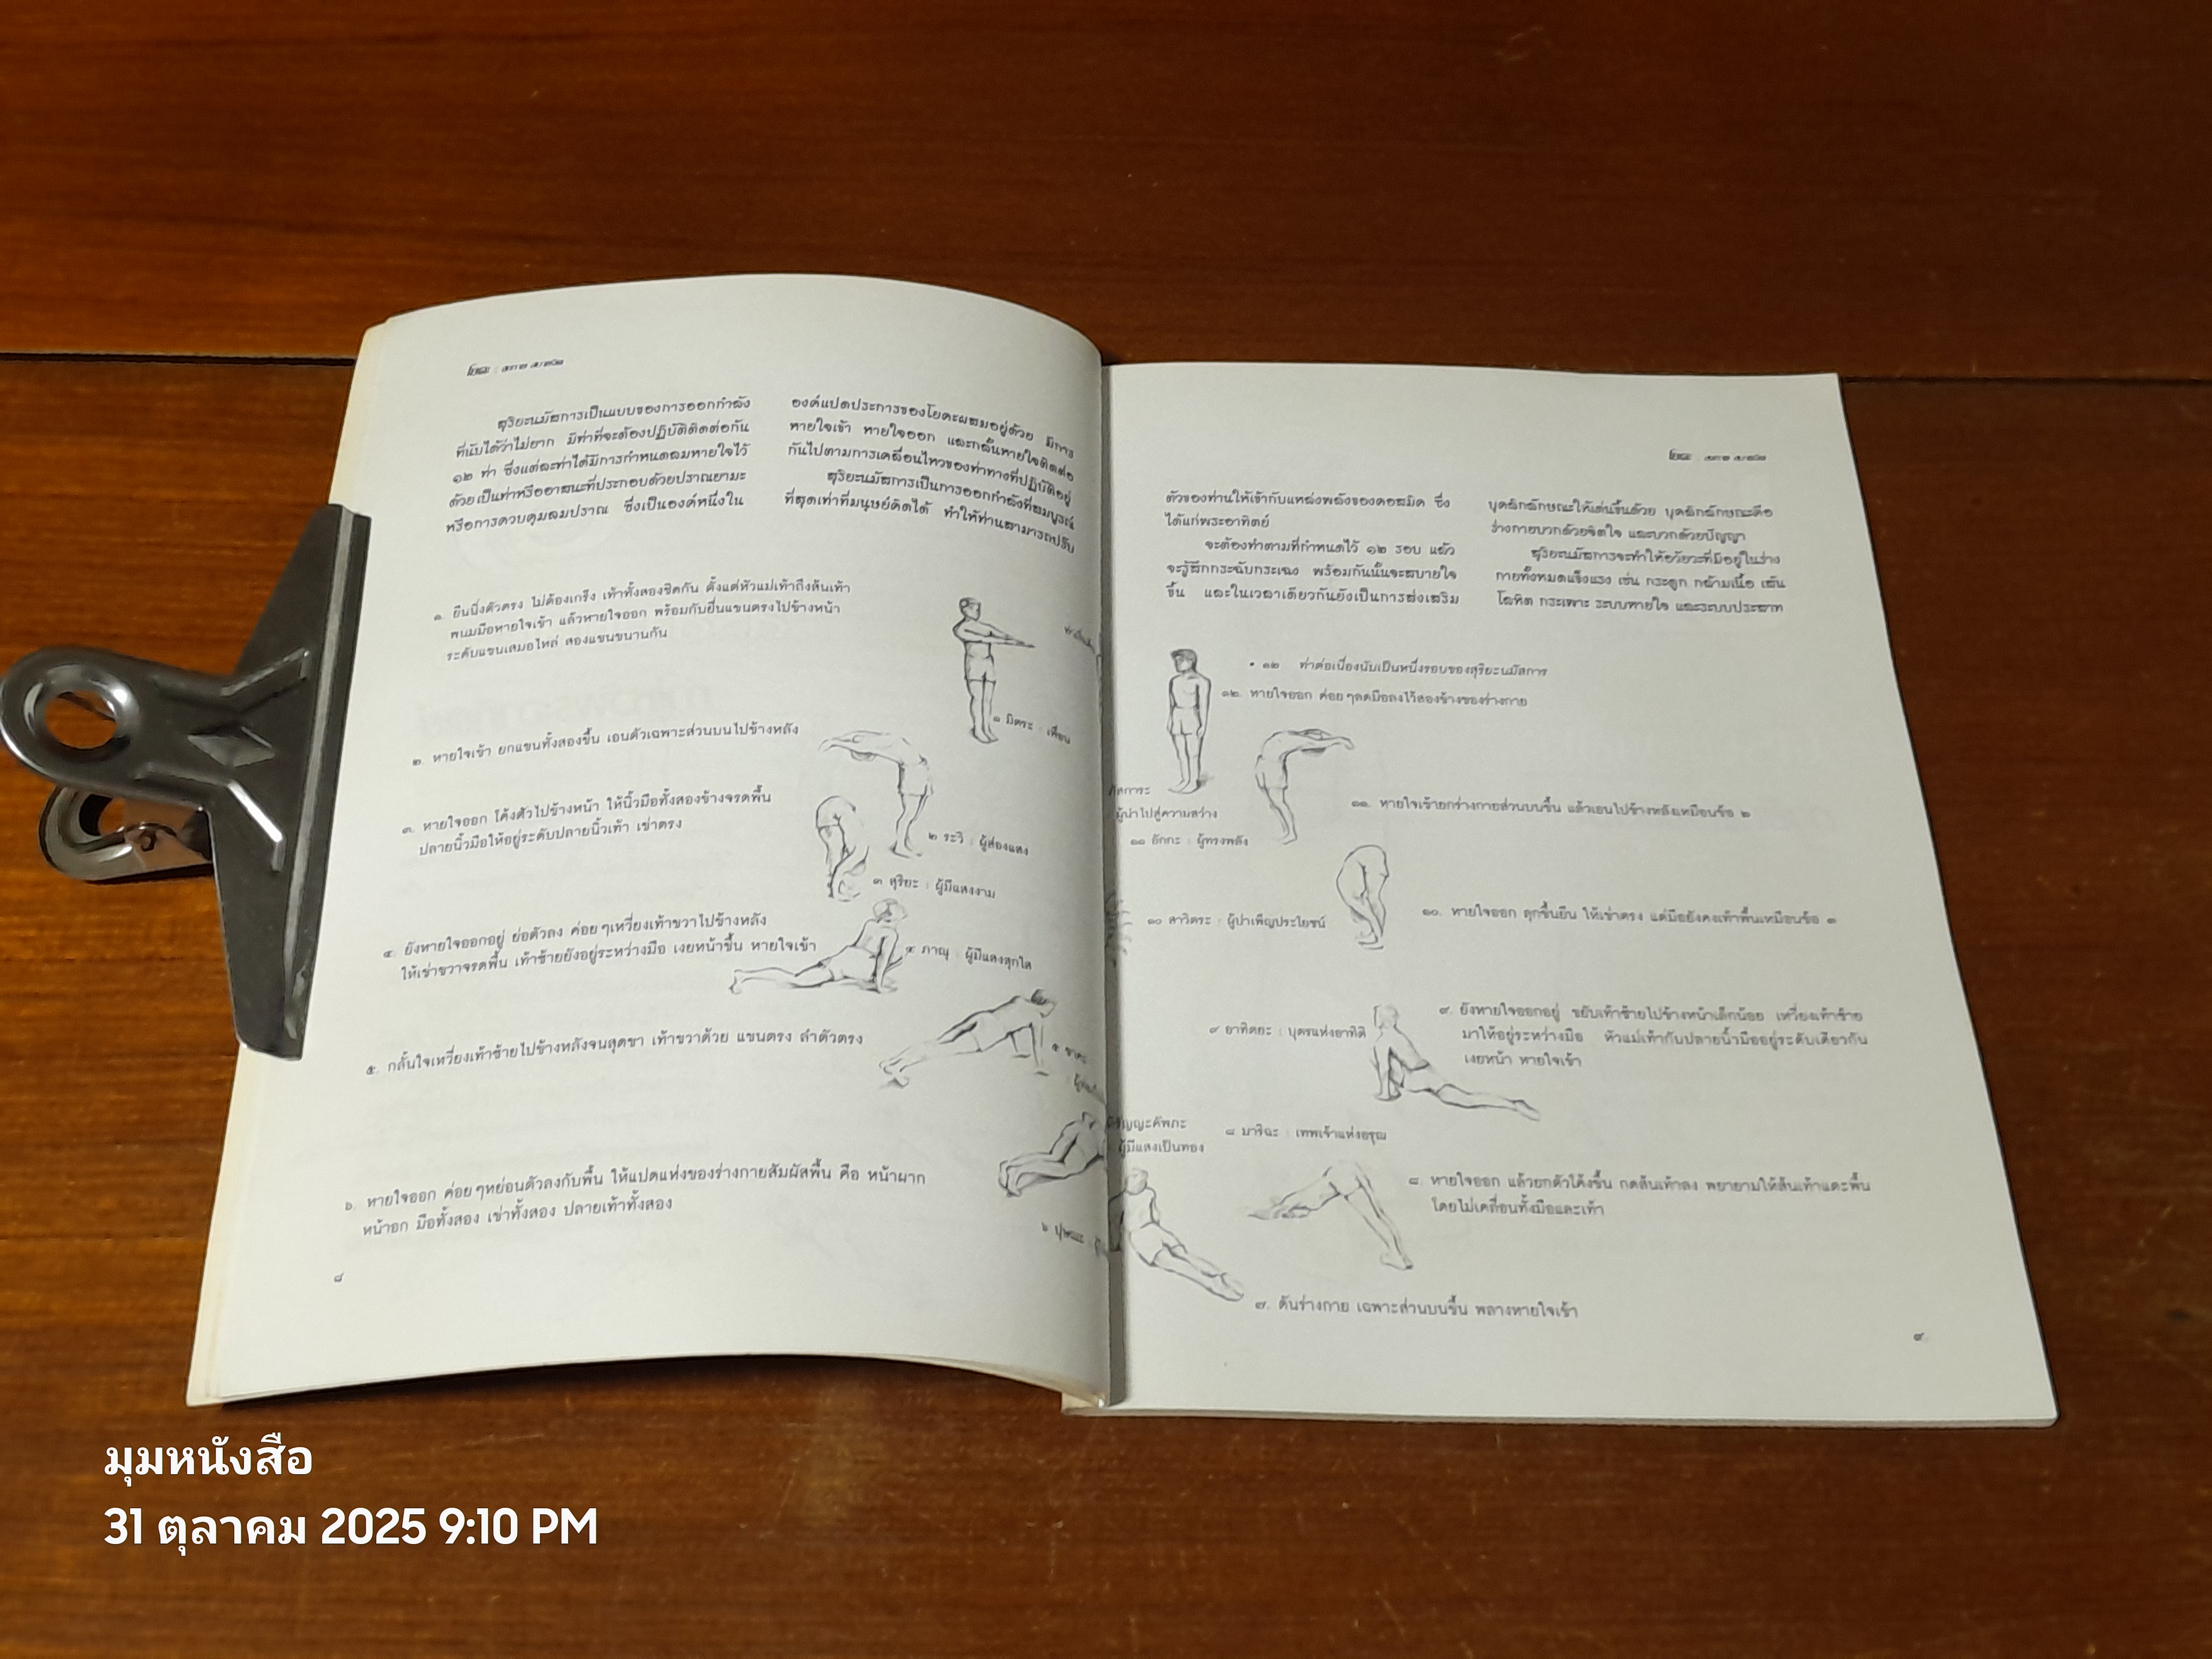 โยคะ :
สุริยะนมัสการเป็นแบบของการออกกำลัง
ที่นับได้ว่าไม่ยาก มีท่าที่จะต้องปฏิบัติติดต่อกัน
๑๒ ท่า ซึ่งแต่ละท่าได้มีการกำหนดลมหายใจไว้
ด้วย เป็นท่าหรืออาสนะที่ประกอบด้วยปราณยามะ
หรือการควบคุมลมปราณ ซึ่งเป็นองค์หนึ่งใน
องค์แปดประการของโยคะผสมอยู่ด้วย มีการ
หายใจเข้า หายใจออก และกลั้นหายใจติดต่อ
กันไปตามการเคลื่อนไหวของท่าทางที่ปฏิบัติอยู่
สุริยะนมัสการเป็นการออกกำลังที่สมบูรณ์
ที่สุดเท่าที่มนุษย์คิดได้ ทำให้ท่านสามารถปรับ
๑. ยืนนิ่งตัวตรง ไม่ต้องเกร็ง เท้าทั้งสองชิดกัน ตั้งแต่หัวแม่เท้าถึงส้นเท้า
พนมมือหายใจเข้า แล้วหายใจออก พร้อมกับยื่นแขนตรงไปข้างหน้า
ระดับแขนเสมอไหล่ สองแขนขนานกัน
๑ มิตระ : เพื่อน
๒. หายใจเข้า ยกแขนทั้งสองขึ้น เอนตัวเฉพาะส่วนบนไปข้างหลัง
๒ ระวิ : ผู้ส่องแสง
๓. หายใจออก โค้งตัวไปข้างหน้า ให้นิ้วมือทั้งสองข้างจรดพื้น
ปลายนิ้วมือให้อยู่ระดับปลายนิ้วเท้า เข่าตรง
๓ สุริยะ : ผู้มีแสงงาม
๔. ยังหายใจออกอยู่ ย่อตัวลง ค่อยๆเหวี่ยงเท้าขวาไปข้างหลัง
ให้เข่าขวาจรดพื้น เท้าซ้ายยังอยู่ระหว่างมือ เงยหน้าขึ้น หายใจเข้า
๔ ภาณุ : ผู้มีแสงสุกใส
๕. กลั้นใจเหวี่ยงเท้าซ้ายไปข้างหลังจนสุดขา เท้าขวาด้วย แขนตรง ลำตัวตรง
๖. หายใจออก ค่อยๆหย่อนตัวลงกับพื้น ให้แปดแห่งของร่างกายสัมผัสพื้น คือ หน้าผาก
หน้าอก มือทั้งสอง เข่าทั้งสอง ปลายเท้าทั้งสอง
๘
โยคะ :
ตัวของท่านให้เข้ากับแหล่งพลังของคอสมิค ซึ่ง
ได้แก่พระอาทิตย์
จะต้องทำตามที่กำหนดไว้ ๑๒ รอบ แล้ว
จะรู้สึกกระฉับกระเฉง พร้อมกันนั้นจะสบายใจ
ขึ้น และในเวลาเดียวกันยังเป็นการส่งเสริม
บุคลิกลักษณะให้เด่นขึ้นด้วย บุคลิกลักษณะคือ
ร่างกายบวกด้วยจิตใจ และบวกด้วยปัญญา
สุริยะนมัสการจะทำให้อวัยวะที่มีอยู่ในร่าง
กายทั้งหมดแข็งแรง เช่น กระดูก กล้ามเนื้อ เส้น
โลหิต กระเพาะ ระบบหายใจ และระบบประสาท
• ๑๒ ท่าต่อเนื่องนับเป็นหนึ่งรอบของสุริยะนมัสการ
๑๒. หายใจออก ค่อยๆลดมือลงไว้สองข้างของร่างกาย
ผู้นำไปสู่ความสว่าง
๑๑. หายใจเข้ายกร่างกายส่วนบนขึ้น แล้วเอนไปข้างหลังเหมือนข้อ ๒
๑๑ อักกะ : ผู้ทรงพลัง
๑๐ สาวิตระ : ผู้บำเพ็ญประโยชน์
๑๐. หายใจออก ลุกขึ้นยืน ให้เข่าตรง แต่มือยังคงเท้าพื้นเหมือนข้อ ๓
๙ อาทิตยะ : บุตรแห่งอาทิติ
๙. ยังหายใจออกอยู่ ขยับเท้าซ้ายไปข้างหน้าเล็กน้อย เหวี่ยงเท้าซ้าย
มาให้อยู่ระหว่างมือ หัวแม่เท้ากับปลายนิ้วมืออยู่ระดับเดียวกัน
เงยหน้า หายใจเข้า
๘ มาริฉะ : เทพเจ้าแห่งอรุณ
ผู้มีแสงเป็นทอง
๘. หายใจออก แล้วยกตัวโค้งขึ้น กดส้นเท้าลง พยายามให้ส้นเท้าแตะพื้น
โดยไม่เคลื่อนทั้งมือและเท้า
๗. ดันร่างกาย เฉพาะส่วนบนขึ้น พลางหายใจเข้า
๙
มุมหนังสือ
31 ตุลาคม 2025 9:10 PM